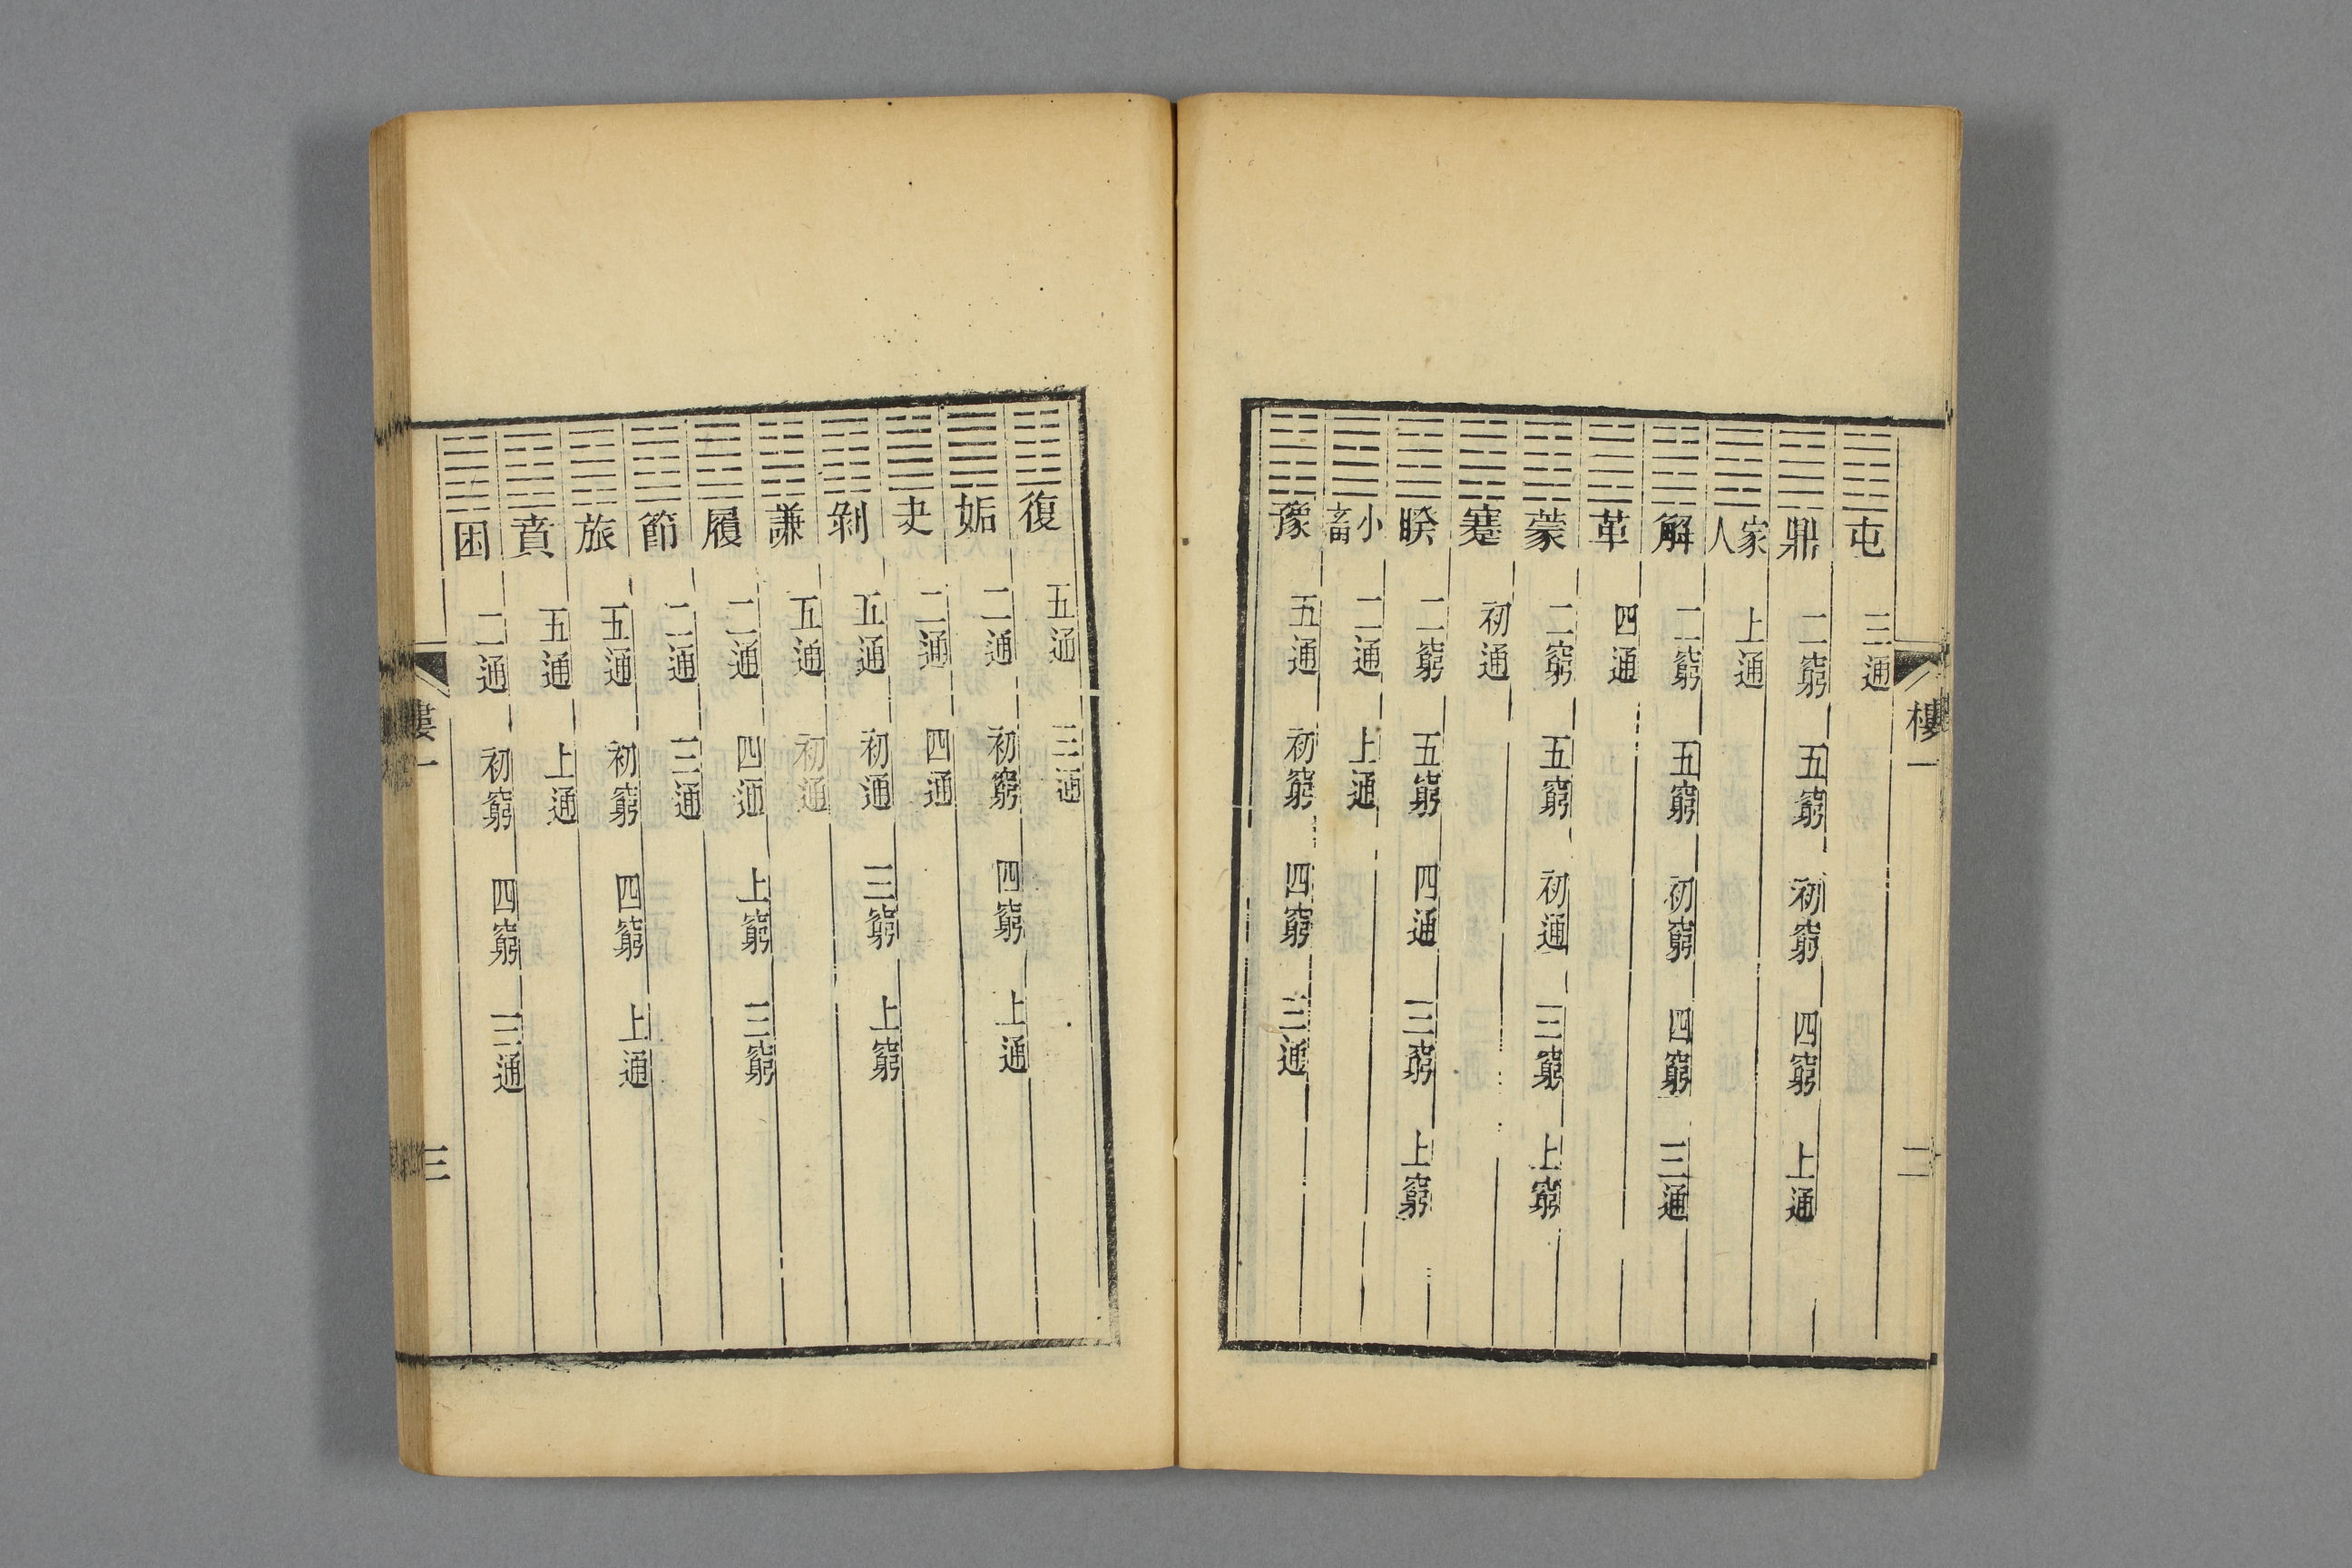 樓一
二
屯 三通
鼎 二窮 五窮 初窮 四窮 上通
家人 上通
解 二窮 五窮 初窮 四窮 三通
革 四通
蒙 二窮 五窮 初通 三窮 上窮
蹇 初通
睽 二窮 五窮 四通 三窮 上窮
小畜 二通 上通
豫 五通 初窮 四窮 三通
復 五通 三通
姤 二通 初窮 四窮 上通
夬 二通 四通
剝 五通 初通 三窮 上窮
謙 五通 初通
履 二通 四通 上窮 三窮
節 二通 三通
旅 五通 初窮 四窮 上通
賁 五通 上通
困 二通 初窮 四窮 三通
樓一
三